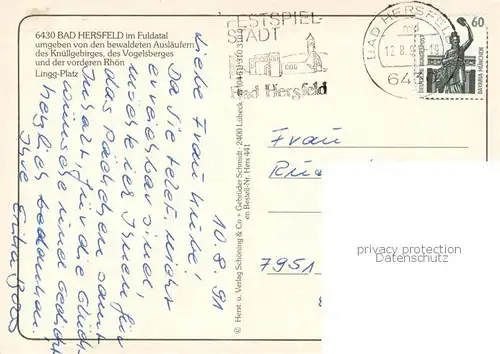 6430 BAD HERSFELD im Fuldatal
umgeben von den bewaldeten Ausläufern
des Knüllgebirges, des Vogelsberges
und der vorderen Rhön
Lingg-Platz
FESTSPIEL-
STADT
Bad Hersfeld
BAD HERSFELD
12.8.9
19
643
60
DEUTSCHE BUNDESPOST
BAVARIA MÜNCHEN
10.8.91
Liebe Frau
Da Sie telef. nicht
erreichbar sind,
möchte ich Ihnen für
das Päckchen samt
Inhalt, für die Glück-
wünsche und Gedicht
herzlich bedanken.
Ihre
© Herst. u. Verlag Schöning & Co + Gebrüder Schmidt · 2400 Lübeck
Bestell-Nr. Hers 441
Frau
7951
privacy protection
Datenschutz